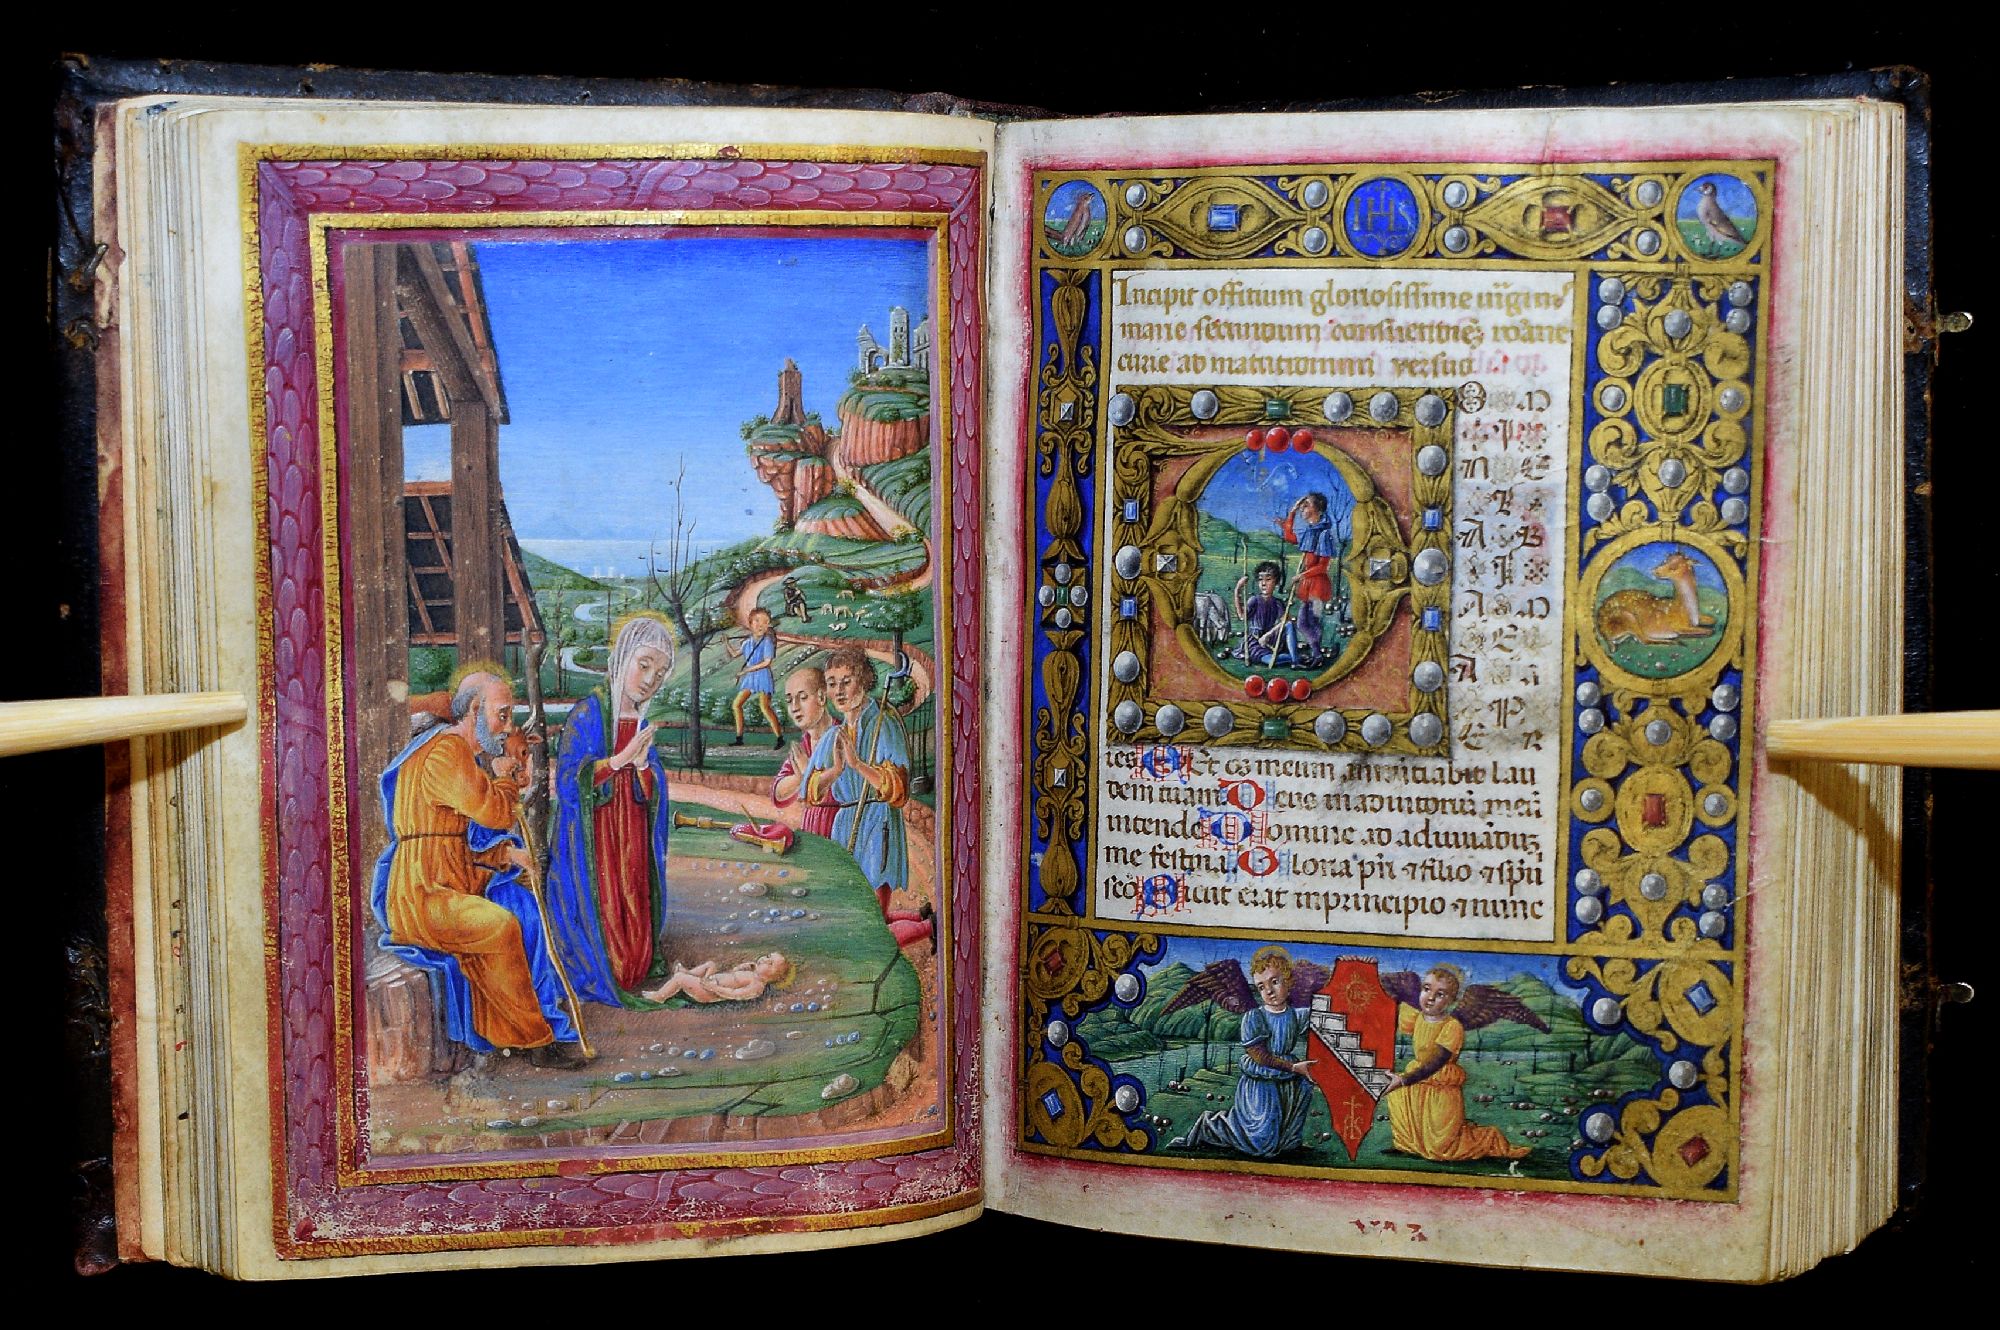 IHS
Incipit offitium gloriosissime uirgin'
marie secundum consuetudinez roāne
curie ad matutinum versus
O M
I
N E
L
A B
I
A M
E
A A
P
E R
ies Et os meum annuntiabit lau
dem tuam Deus in adiutoriū meū
intende Domine ad adiuuāduz
me festina Gloria pri̅ ⁊ filio ⁊ spūi
scō Sicut erat in principio ⁊ nunc